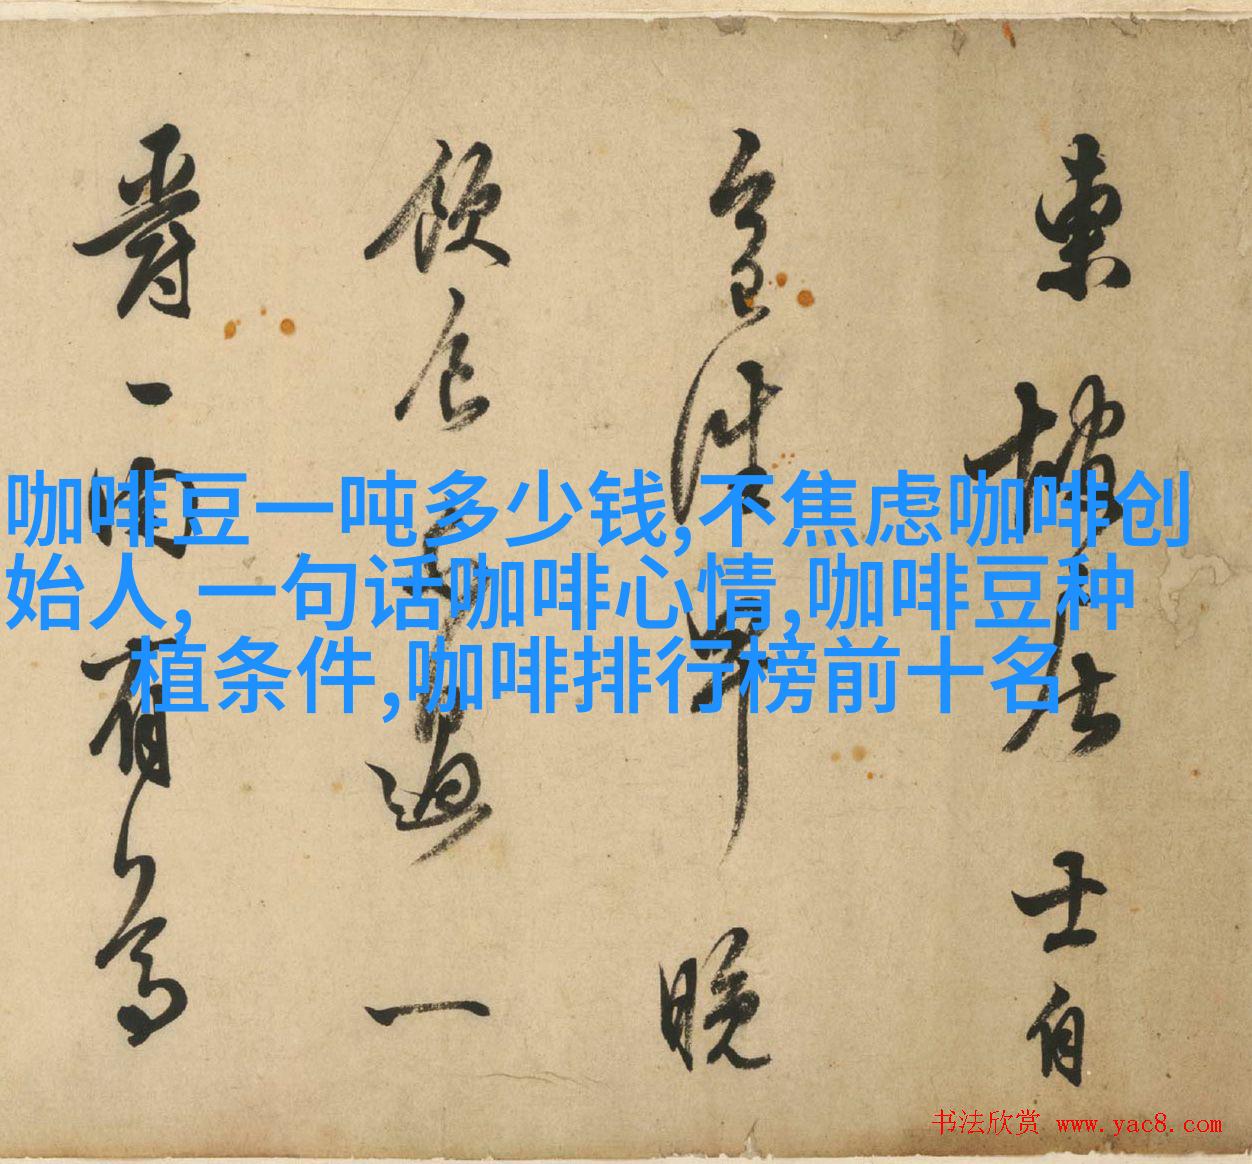 咖啡豆一吨多少钱,不焦虑咖啡创
始人,一句话咖啡心情,咖啡豆种
植条件,咖啡排行榜前十名
東坡居士自
今日早晚
飲食不過一
爵一肉有
书法欣赏 www.yac8.com